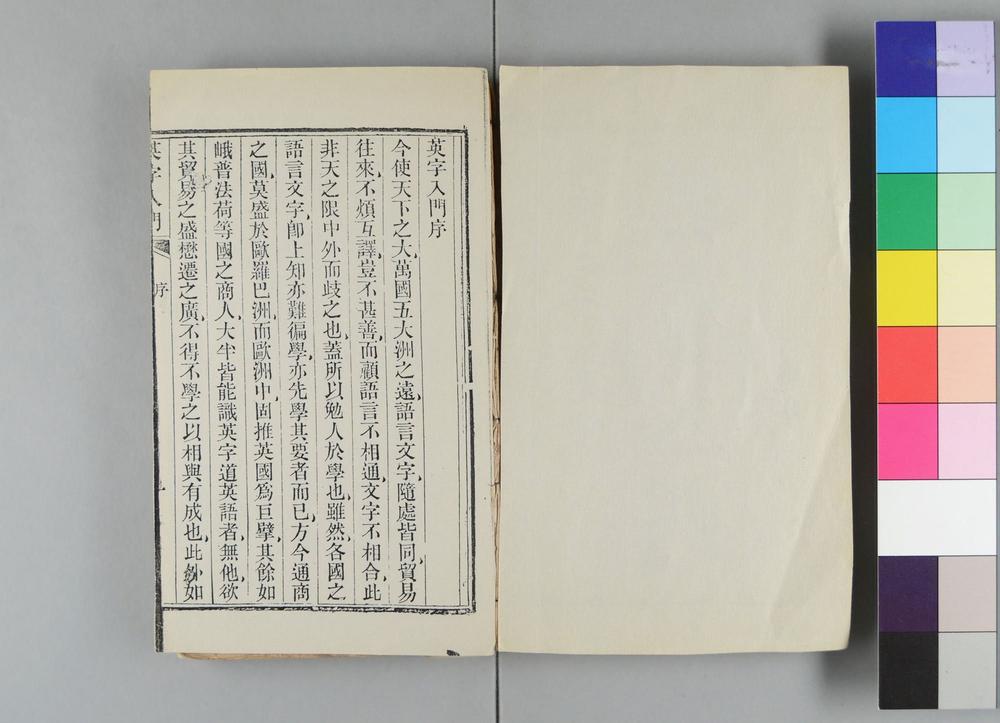 英字入門序
今使天下之大、萬國五大洲之遠、語言文字、隨處皆同、貿易
往來、不煩互譯、豈不甚善、而顧語言不相通、文字不相合、此
非天之限中外而歧之也、蓋所以勉人於學也、雖然、各國之
語言文字、卽上知亦難徧學、亦先學其要者而已、方今通商
之國、莫盛於歐羅巴洲、而歐洲中、固推英國爲巨擘、其餘如
峨普法荷等國之商人、大半皆能識英字道英語者、無他、欲
其貿易之盛懋遷之廣、不得不學之以相與有成也、此外如
英字入門
序